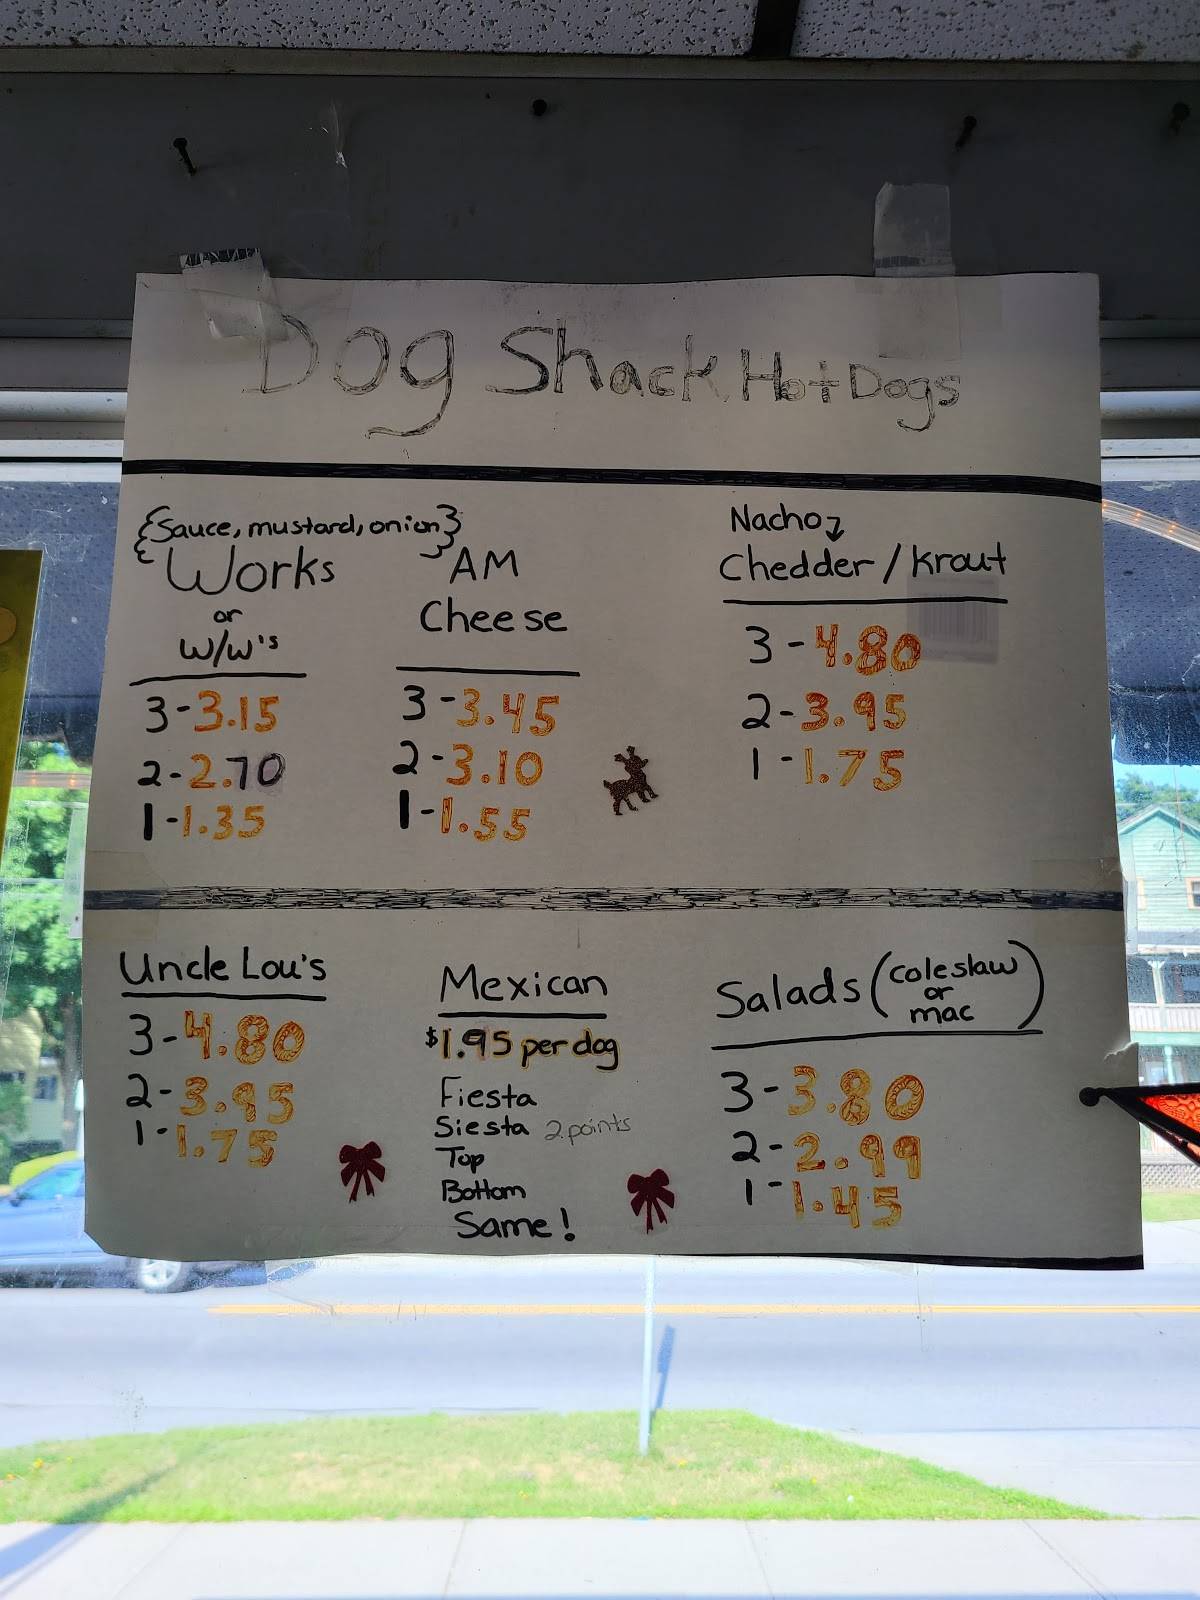 Dog Shack Hot Dogs
{Sauce, mustard, onion}
Works
or
W/W's
3-3.15
2-2.70
1-1.35
AM
Cheese
3-3.45
2-3.10
1-1.55
Nacho
Chedder/Krout
3-4.80
2-3.95
1-1.75
Uncle Lou's
3-4.80
2-3.95
1-1.75
Mexican
$1.95 per dog
Fiesta
Siesta 2 points
Top
Bottom
Same!
Salads (coleslaw
or
mac)
3-3.80
2-2.99
1-1.45